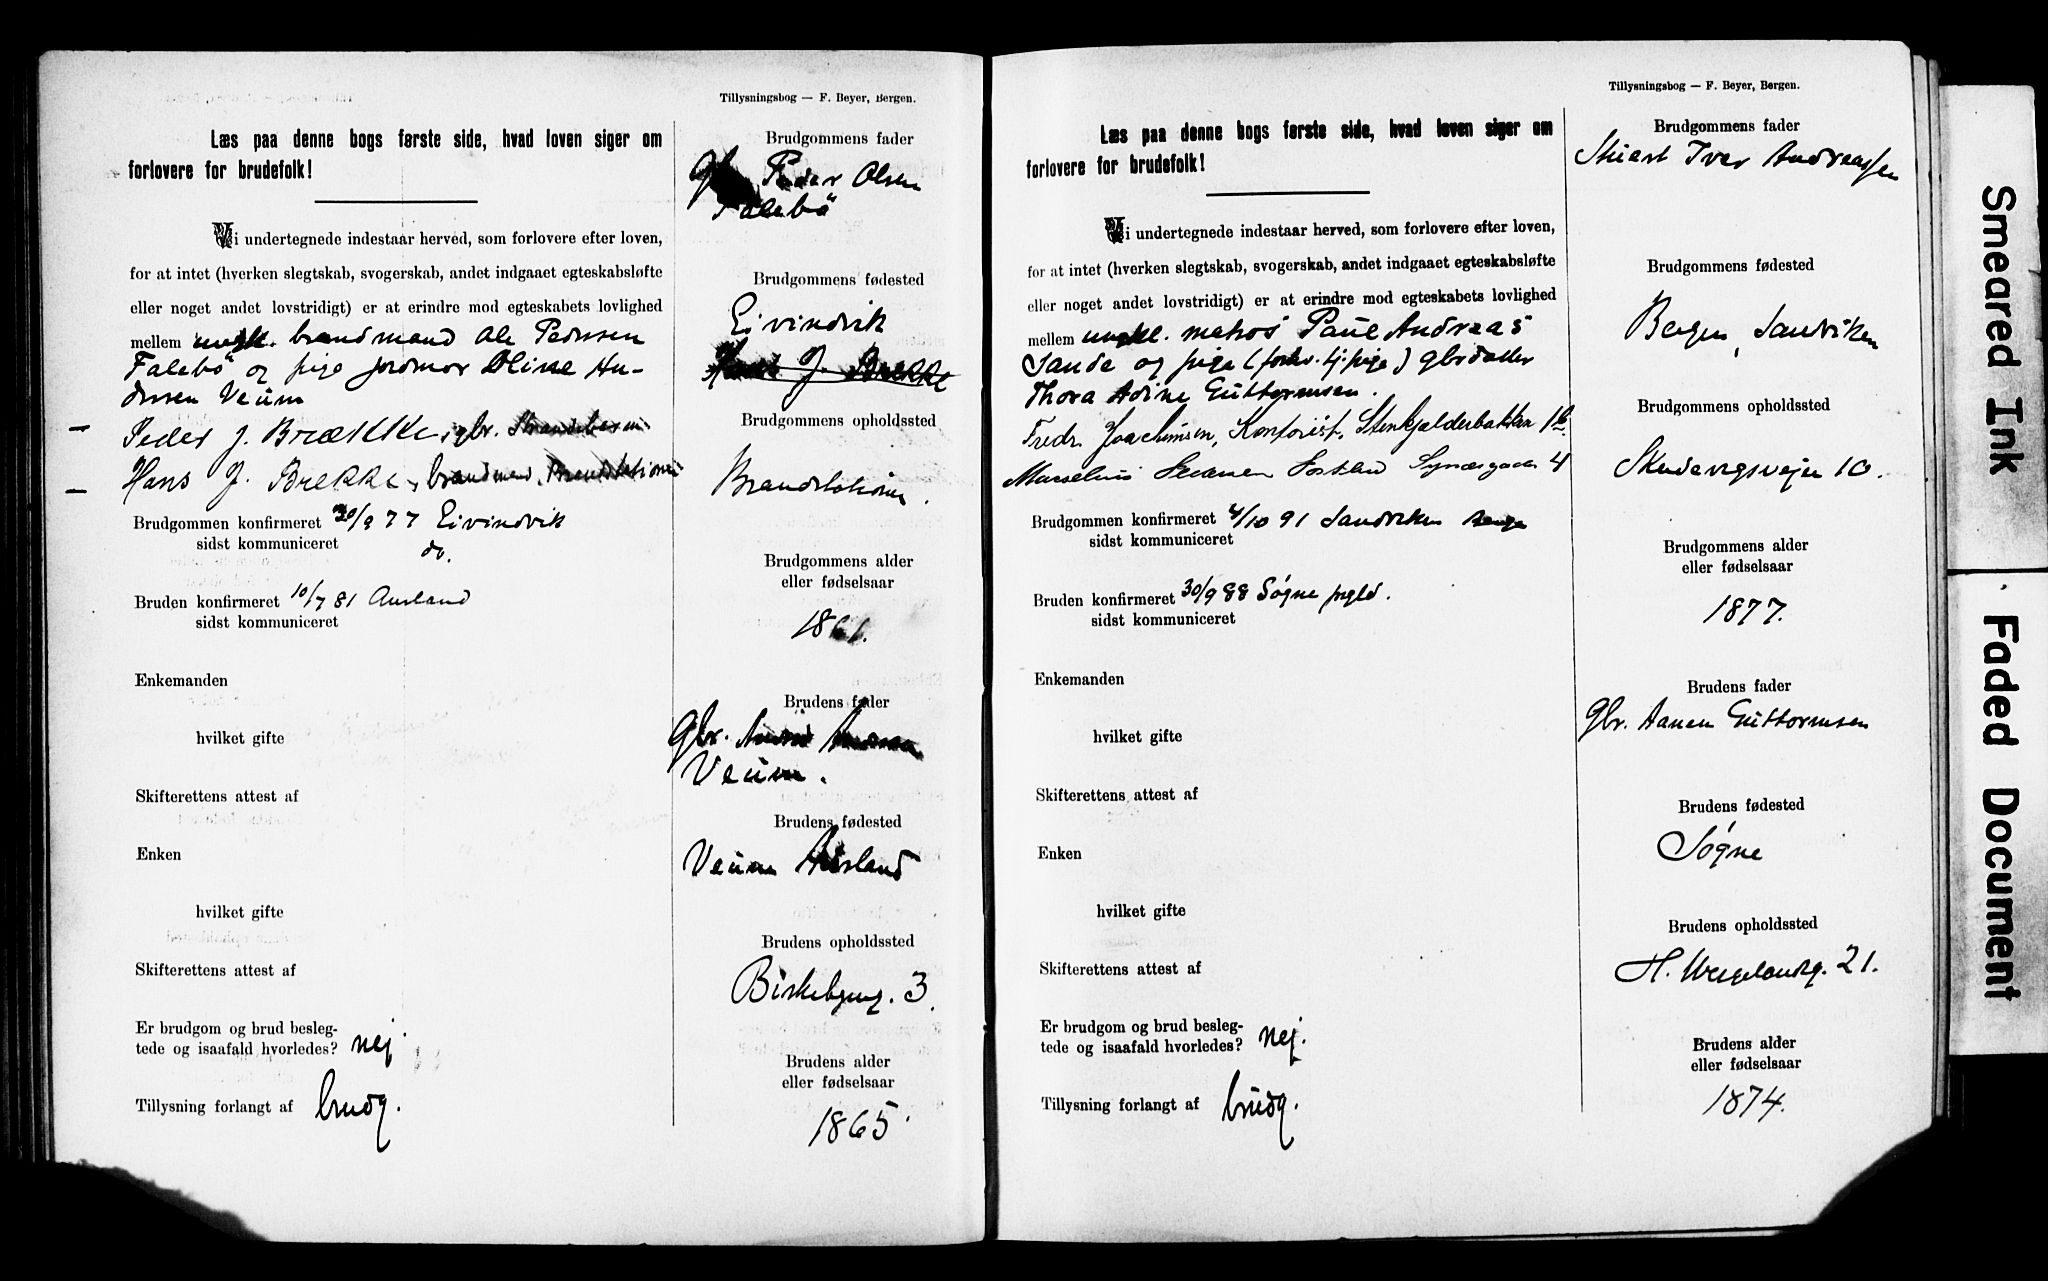 Tillysningsbog — F. Beyer, Bergen.
Læs paa denne bogs første side, hvad loven siger om
forlovere for brudefolk!
Vi undertegnede indestaar herved, som forlovere efter loven,
for at intet (hverken slegtskab, svogerskab, andet indgaaet egteskabsløfte
eller noget andet lovstridigt) er at erindre mod egteskabets lovlighed
mellem ungk. brandmand Ole Pedersen
Falebö og pige jordmor Oline An-
dersen Veum
Peder J. Brække, gbr.
Hans J. Brekke, brandmand, Brandstationen
Brudgommen konfirmeret 30/9 77 Eivindvik
sidst kommuniceret do.
Bruden konfirmeret 10/7 81 Aurland
sidst kommuniceret
Enkemanden
hvilket gifte
Skifterettens attest af
Enken
hvilket gifte
Skifterettens attest af
Er brudgom og brud besleg-
tede og isaafald hvorledes? nej
Tillysning forlangt af brudg.
Brudgommens fader
Peder Olsen
Falebö
Brudgommens fødested
Eivindvik
Hans J. Brekke
Brudgommens opholdssted
Brandstationen.
Brudgommens alder
eller fødselsaar
1861.
Brudens fader
Gbr.
Veum.
Brudens fødested
Veum Aurland
Brudens opholdssted
Birkebgng. 3.
Brudens alder
eller fødselsaar
1865.
Tillysningsbog — F. Beyer, Bergen.
Læs paa denne bogs første side, hvad loven siger om
forlovere for brudefolk!
Vi undertegnede indestaar herved, som forlovere efter loven,
for at intet (hverken slegtskab, svogerskab, andet indgaaet egteskabsløfte
eller noget andet lovstridigt) er at erindre mod egteskabets lovlighed
mellem ungkl. matros Paul Andreas
Sande og pige (forhv. tj. pige) gbrdatter
Thora Adine Guttormsen.
Fredr. Joachimsen, Kontorist, Stenkjelderbakken 1b
4
Brudgommen konfirmeret 4/10 91 Sandviken
sidst kommuniceret
Bruden konfirmeret 30/9 88 Søgne prgld.
sidst kommuniceret
Enkemanden
hvilket gifte
Skifterettens attest af
Enken
hvilket gifte
Skifterettens attest af
Er brudgom og brud besleg-
tede og isaafald hvorledes? nej.
Tillysning forlangt af brudg.
Brudgommens fader
Stuert Iver Andreassen
Brudgommens fødested
Bergen, Sandviken
Brudgommens opholdssted
Skudevigsveien 10.
Brudgommens alder
eller fødselsaar
1877.
Brudens fader
Gbr. Aanen Guttormsen
Brudens fødested
Søgne
Brudens opholdssted
H. Wergelandsg. 21.
Brudens alder
eller fødselsaar
1874.
Smeared Ink
Faded Document